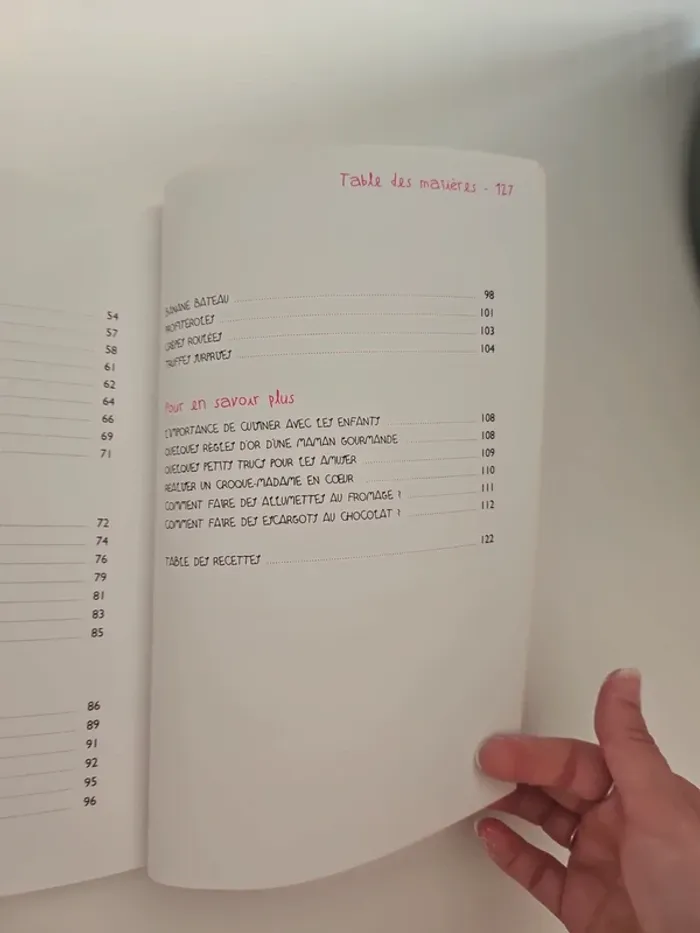 54
57
58
61
62
64
66
69
71
72
74
76
79
81
83
85
86
89
91
92
95
96
Table des matières - 127
BANANE BATEAU 98
PROFITEROLES 101
CRÊPES ROULÉES 103
TRUFFES SURPRISES 104
Pour en savoir plus
L'IMPORTANCE DE CUISINER AVEC LES ENFANTS 108
QUELQUES RÈGLES D'OR D'UNE MAMAN GOURMANDE 108
QUELQUES PETITS TRUCS POUR LES AMUSER 109
RÉALISER UN CROQUE-MADAME EN CŒUR 110
COMMENT FAIRE DES ALLUMETTES AU FROMAGE ? 111
COMMENT FAIRE DES ESCARGOTS AU CHOCOLAT ? 112
TABLE DES RECETTES 122